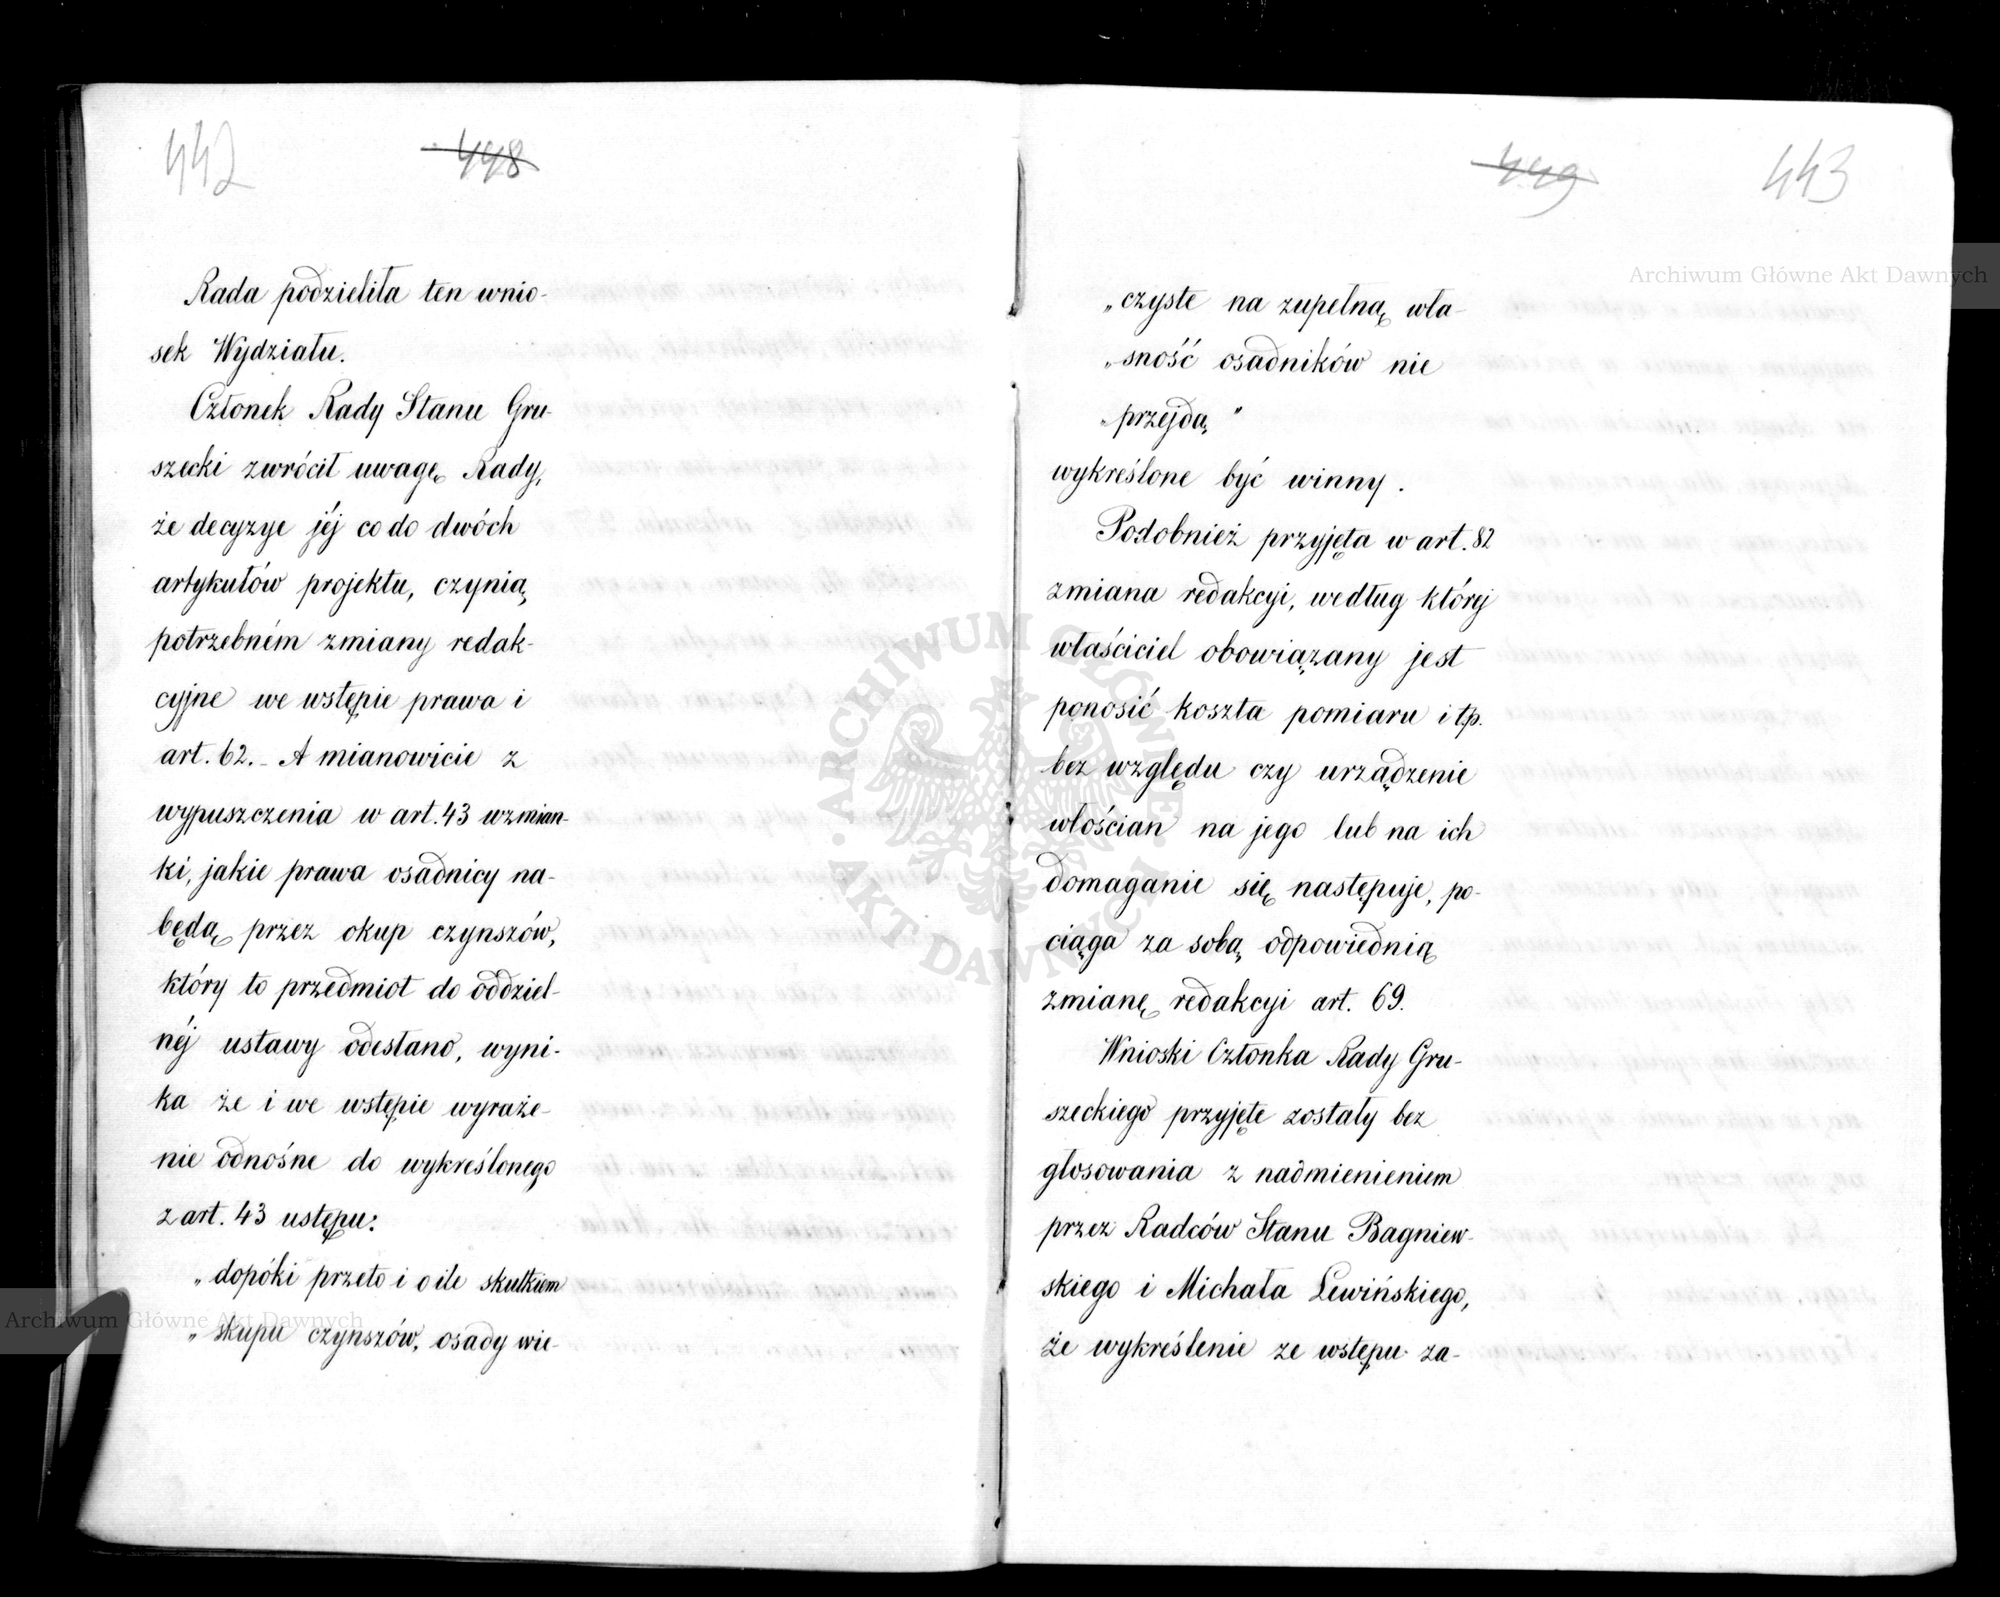 442
448
Rada podzieliła ten wnio-
sek Wydziału.
Członek Rady Stanu Gru-
szecki zwrócił uwagę Rady,
że decyzye jéj co do dwóch
artykułów projektu, czynią
potrzebném zmiany redak-
cyjne we wstępie prawa i
art. 62. - A mianowicie z
wypuszczenia w art. 43 wzmian-
ki, jakie prawa osadnicy na-
będą przez okup czynszów,
który to przedmiot do oddziel-
néj ustawy odesłano, wyni-
ka że i we wstępie wyraże-
nie odnośne do wykreślonego
z art. 43 ustępu:
„dopóki przeto i o ile skutkiem
„skupu czynszów, osady wie-
449
443
„czyste na zupełną wła-
„sność osadników nie
„przejdą"
wykreślone być winny.
Podobnież przyjęta w art. 82
zmiana redakcyi, według któréj
właściciel obowiązany jest
ponosić koszta pomiaru i t.p.
bez względu czy urządzenie
włościan na jego lub na ich
domaganie się następuje, po-
ciąga za sobą odpowiednią
zmianę redakcyi art. 69.
Wnioski Członka Rady Gru-
szeckiego przyjęte zostały bez
głosowania z nadmienieniem
przez Radców Stanu Bagniew-
skiego i Michała Lewińskiego,
że wykreślenie ze wstępu za-
Archiwum Główne Akt Dawnych
ARCHIWUM GŁÓWNE · AKT DAWNYCH ·
Archiwum Główne Akt Dawnych